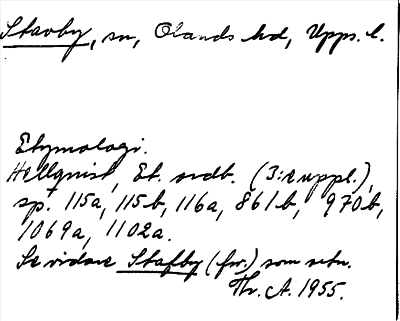 Stavby, sn, Olands hd, Upps. l.
Etymologi.
Hellquist, Et. ordb. (3:e uppl.),
sp. 115a, 115b, 116a, 861b, 970b,
1069a, 1102a.
Se vidare Stafby (fw.) som setn.
Th. A. 1955.